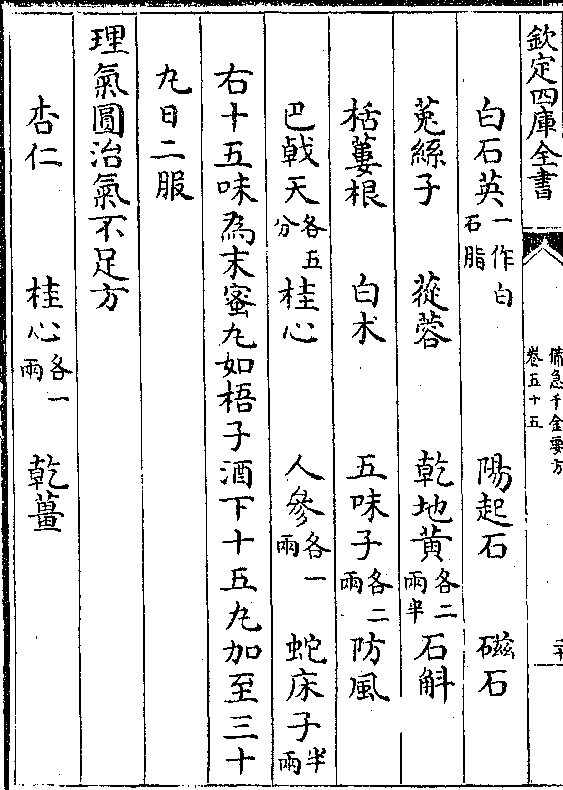 欽定四庫全書
備急千金要方
卷五十五
白石英一作白石脂 陽起石 磁石
菟絲子 蓯蓉 乾地黃各二兩半 石斛
栝蔞根 白朮 五味子各二兩 防風
巴戟天各五分 桂心 人參各一兩 蛇床子半兩
右十五味為末蜜丸如梧子酒下十五丸加至三十
丸日二服
理氣圓治氣不足方
杏仁 桂心各一兩 乾薑